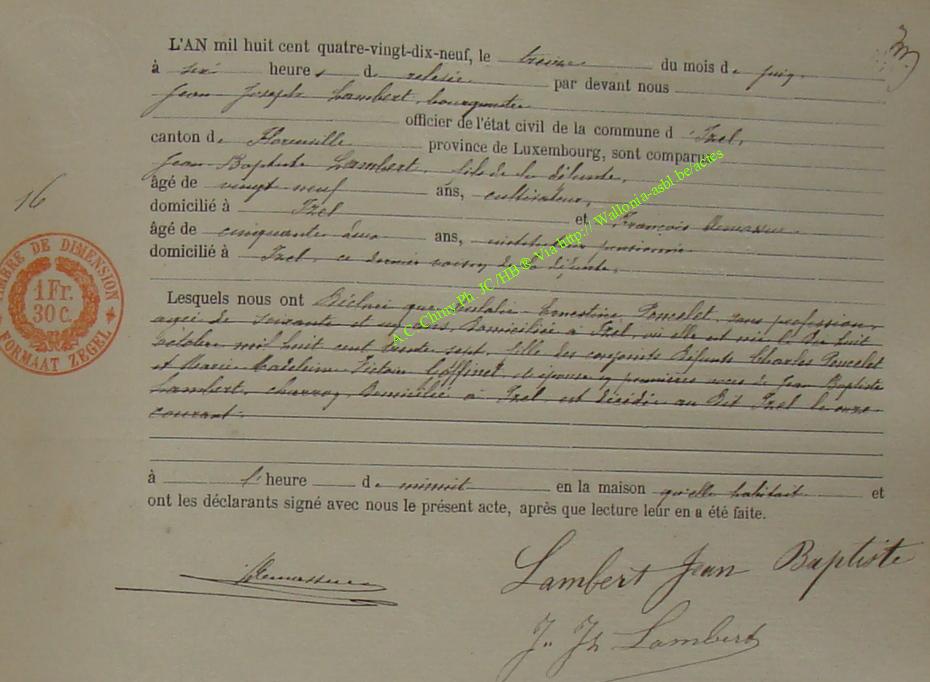 L'AN mil huit cent quatre-vingt-dix-neuf, le treize du mois de juin
à six heures de relevée par devant nous
Jean Joseph Lambert, bourgmestre
officier de l'état civil de la commune d'Izel,
canton de Florenville province de Luxembourg, sont comparus
Jean Baptiste Lambert, fils de la défunte,
âgé de vingt neuf ans, cultivateur,
domicilié à Izel et François
âgé de cinquante ans, instituteur pensionné
domicilié à Izel, ce dernier voisin de la défunte,
Lesquels nous ont déclaré que Ernestine Poncelet, sans profession,
agée de soixante et un ans, domiciliée à Izel, où elle est née le dix huit
octobre mil huit cent trente sept, fille des conjoints défunts Charles Poncelet
et Marie Madeleine Victoire Goffinet, et épouse en premières noces de Jean Baptiste
Lambert, charron, domicilié à Izel, est décédée au dit Izel le onze
courant
à l'heure de minuit en la maison qu'elle habitait et
ont les déclarants signé avec nous le présent acte, après que lecture leur en a été faite.
Lambert Jean Baptiste
J. Jh Lambert
16
TIMBRE DE DIMENSION
1 Fr.
30 C.
FORMAAT ZEGEL
A.C- Chiny Ph JC /HB ® Via http:// Wallonia-asbl.be/actes